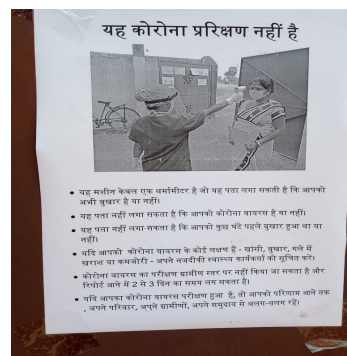 यह कोरोना प्ररिक्षण नहीं है
• यह मशीन केबल एक थर्मामीटर है जो यह पता लगा सकती है कि आपको
अभी बुखार है या नहीं।
• यह पता नहीं लगा सकता है कि आपको कोरोना वायरस है या नहीं।
• यह पता नहीं लगा सकता है कि आपको कुछ घंटे पहले बुखार हुआ था या
नहीं।
• यदि आपको कोरोना वायरस के कोई लक्षण हैं - खांसी, बुखार, गले में
खराश या कमजोरी - अपने नजदीकी स्वास्थ्य कार्यकर्ता को सूचित करें।
• कोरोना वायरस का परीक्षण ग्रामीण स्तर पर नहीं किया जा सकता है और
रिपोर्ट आने में 2 से 3 दिन का समय लग सकता है।
• यदि आपका कोरोना वायरस परीक्षण हुआ है, तो आपको परिणाम आने तक
, अपने परिवार, अपने ग्रामीणों, अपने समुदाय से अलग-अलग रहें।